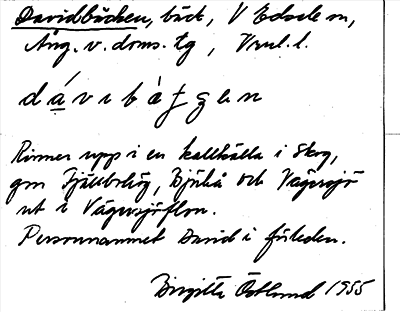 Davidbäcken, bäck, V Edsele sn,
Ång. v. doms. tg, Vnl. l.
dávibàggen
Rinner upp i en kallkälla i Skog,
gm Fjällbohög, Björkå och Vägersjö
ut i Vägersjöflon.
Personnamnet David i förleden.
Birgitta Östlund 1955